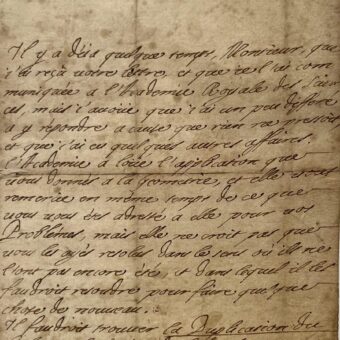 Il y a desia quelque temps, Monsieur, que
j'ai reçu votre lettre, et que je l'ai com
muniquée a l'Academie Royale des Scien
ces, mais j'avoüe que j'ai un peu differé
a y répondre a cause que rien ne pressoit
et que j'ai eu quelques autres affaires.
l'Academie a loüé l'application que
vous donnés a la Geometrie, et elle vous
remercie en même temps de ce que
vous vous étes adressé a elle pour vos
Problemes, mais elle ne croit pas que
vous les ayés resolus dans le sens où ils ne
sont pas encore été, et dans lequel il les
faudroit resoudre pour faire quelque
chose de nouveau.
Il faudroit trouver la Duplication du